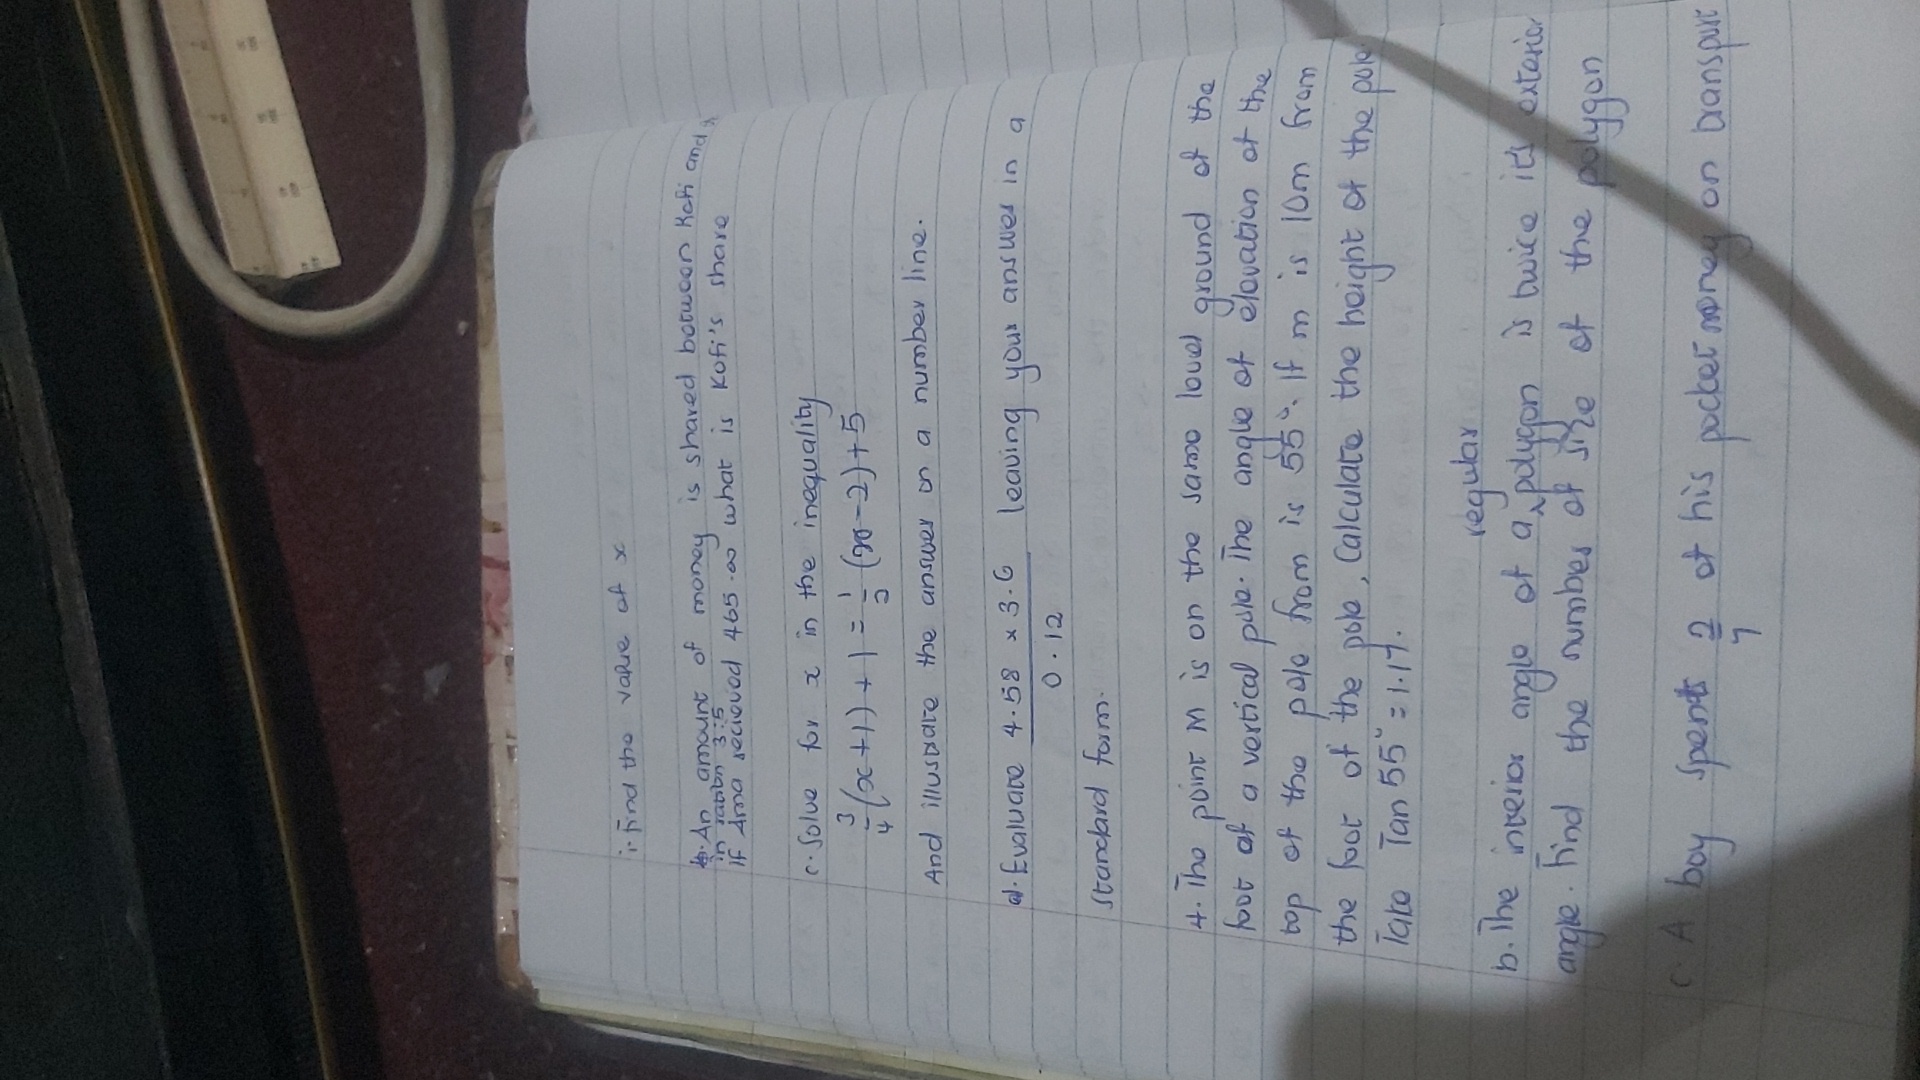 i. Find the value of x
b. An amount of money is shared between Kofi and
in ration 3:5
If Ama recieved 465.00 what is Kofi's share
c. Solve for x in the inequality
3/4 (x+1) + 1 = 1/2 (x-2) + 5
And illusrate the answer on a number line.
d. Evaluate 4.58 x 3.6 / 0.12 leaving your answer in a
standard form.
4. The point m is on the same level ground of the
foot of a vertical pole. The angle of elevation of the
top of the pole from is 55°. If m is 10m from
the foot of the pole, Calculate the height of the pole.
Take Tan 55° = 1.17.
regular
b. The interior angle of a polygon is twice its exterior
angle. Find the number of size of the polygon
c. A boy spent 2/7 of his pocket money on transport